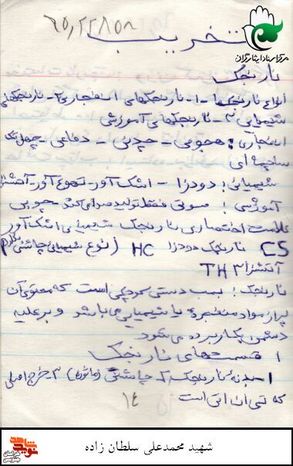 ۶۵,۲۲۸۵۸
تخریب
مرکز اسناد ایثارگران
نارنجک
انواع نارنجکها - ۱- نارنجکهای انفجاری ۲- نارنجکهای
شیمیایی ۳- نارنجکهای آموزشی
انفجاری: هجومی - جیبی - دفاعی - چهل تکه
ساچمه ای
شیمیایی: دودزا - اشک آور - تهوع آور - آتشزا
آموزشی: صوتی فقط تولید صدا می کند - چوبی
علامت اختصاری نارنجک شیمیایی اشک آور
CS نارنجک دودزا HC (نوع شیمیایی چاشنی
آتشزا TH۳
نارنجک: بمب دستی کوچکی است که محتوی آن
پر از مواد منفجره یا شیمیایی می باشد و بر علیه
دشمن بکار برده می شود
قسمتهای نارنجک
۱- بدنه نارنجک ۲- چاشنی (ماسوره) ۳- خرج اصلی
که تی ان تی است
۱۴
شهید محمدعلی سلطان زاده